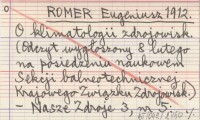 ROMER Eugeniusz 1912.
O klimatologii zdrojowisk.
(Odczyt wygłoszony 8 lutego
na posiedzeniu naukowem
Sekcji balneotechnicznej
Krajowego Związku Zdrojowisk.)
- Nasze Zdroje 3, nr 5: